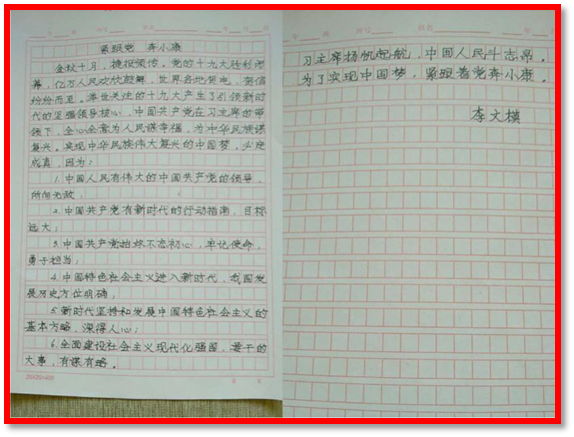 紧跟党 奔小康
金秋十月，捷报频传。党的十九大胜利闭
幕，亿万人民欢欣鼓舞，世界各地贺电、贺信
纷纷而至。举世关注的十九大产生了引领新时
代的坚强领导核心，中国共产党在习主席的带
领下，全心全意为人民谋幸福，为中华民族谋
复兴。实现中华民族伟大复兴的中国梦，必定
成真，因为：
1.中国人民有伟大的中国共产党的领导，
所向无敌；
2.中国共产党有新时代的行动指南，目标
远大；
3.中国共产党始终不忘初心，牢记使命，
勇于担当；
4.中国特色社会主义进入新时代，我国发
展历史方位明确；
5.新时代坚持和发展中国特色社会主义的
基本方略，深得人心；
6.全面建设社会主义现代化强国，要干的
大事，有谋有略。
习主席扬帆起航，中国人民斗志昂。
为了实现中国梦，紧跟着党奔小康。
李文模